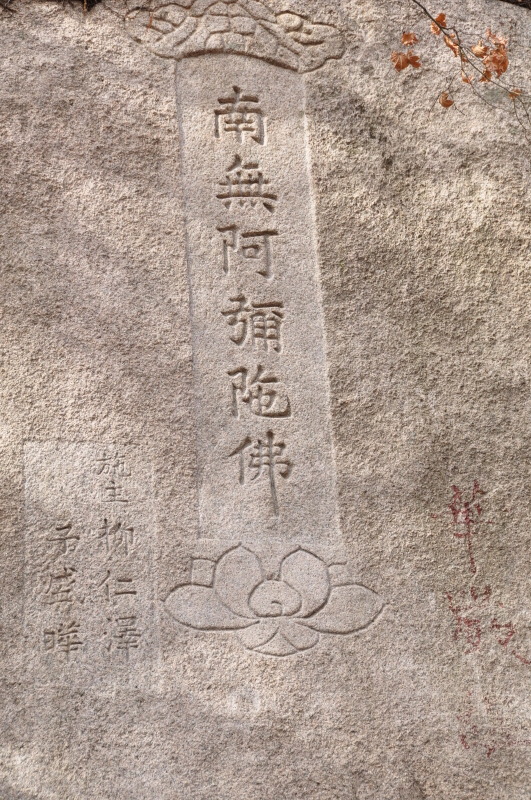 南無阿彌陀佛
施主 柳仁澤
子 晔